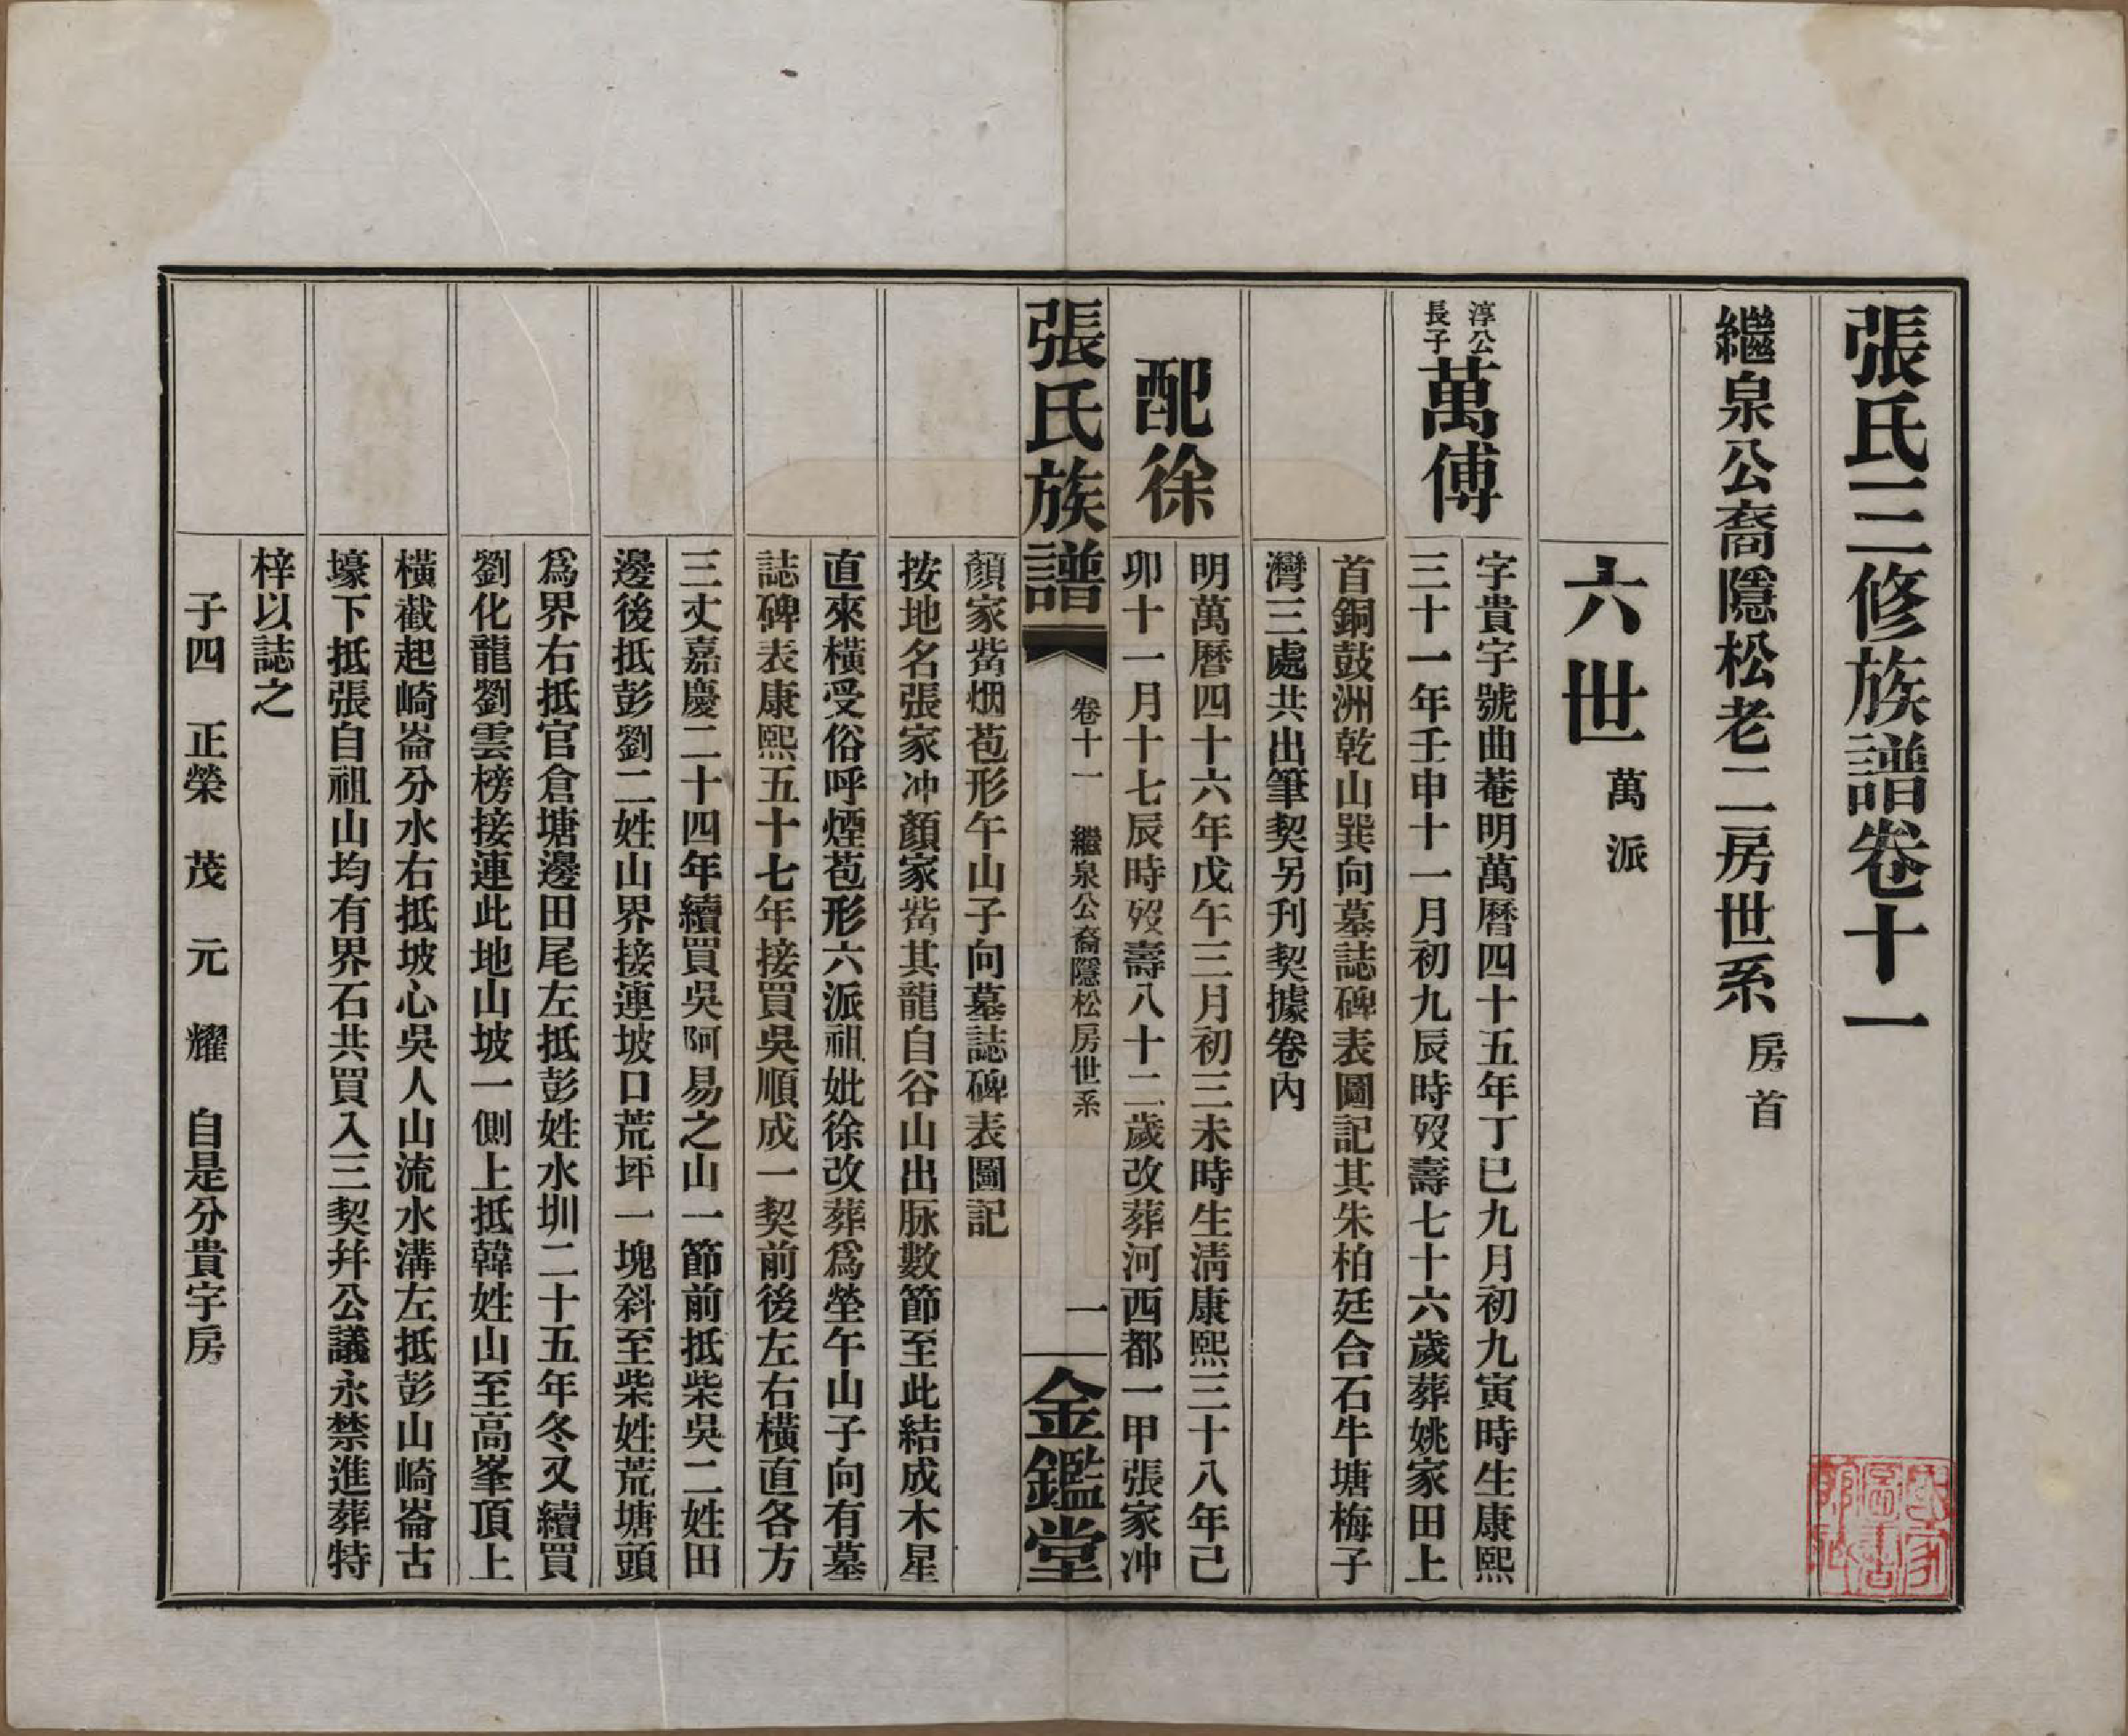 張氏三修族譜卷十一
繼泉公裔隱松老二房世系 房首
六世 萬派
淳公
長子
萬傅
字貴字號曲菴明萬曆四十五年丁巳九月初九寅時生康熙
三十一年壬申十一月初九辰時歿壽七十六歲葬姚家田上
首銅鼓洲乾山巽向墓誌碑表圖記其朱柏廷合石牛塘梅子
灣三處共出筆契另刋契據卷內
配徐
明萬曆四十六年戊午三月初三未時生淸康熙三十八年己
卯十一月十七辰時歿壽八十二歲改葬河西都一甲張家冲
張氏族譜
卷十一 繼泉公裔隱松房世系
一
金鑑堂
顏家嘴烟苞形午山子向墓誌碑表圖記
按地名張家冲顏家嘴其龍自谷山出脉數節至此結成木星
直來橫受俗呼煙苞形六派祖妣徐改葬爲塋午山子向有墓
誌碑表康熙五十七年接買吳順成一契前後左右橫直各方
三丈嘉慶二十四年續買吳阿易之山一節前抵柴吳二姓田
邊後抵彭劉二姓山界接連坡口荒坪一塊斜至柴姓荒塘頭
爲界右抵官倉塘邊田尾左抵彭姓水圳二十五年冬又續買
劉化龍劉雲榜接連此地山坡一側上抵韓姓山至高峯頂上
橫截起崎崙分水右抵坡心吳人山流水溝左抵彭山崎崙古
壕下抵張自祖山均有界石共買入三契幷公議永禁進葬特
梓以誌之
子四 正榮 茂 元 耀 自是分貴宇房